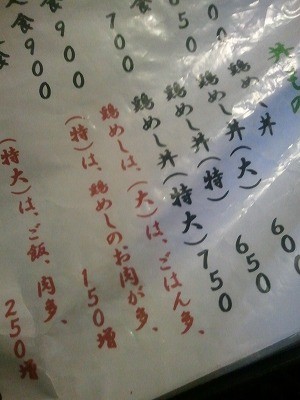 鶏めし丼(大) 600
鶏めし丼(特) 650
鶏めし丼(特大) 750
鶏めしは、(大)は、ごはん多、
(特)は、鶏めしのお肉が多、150増
(特大)は、ご飯、肉多、250増
650
700
食 900
食 900